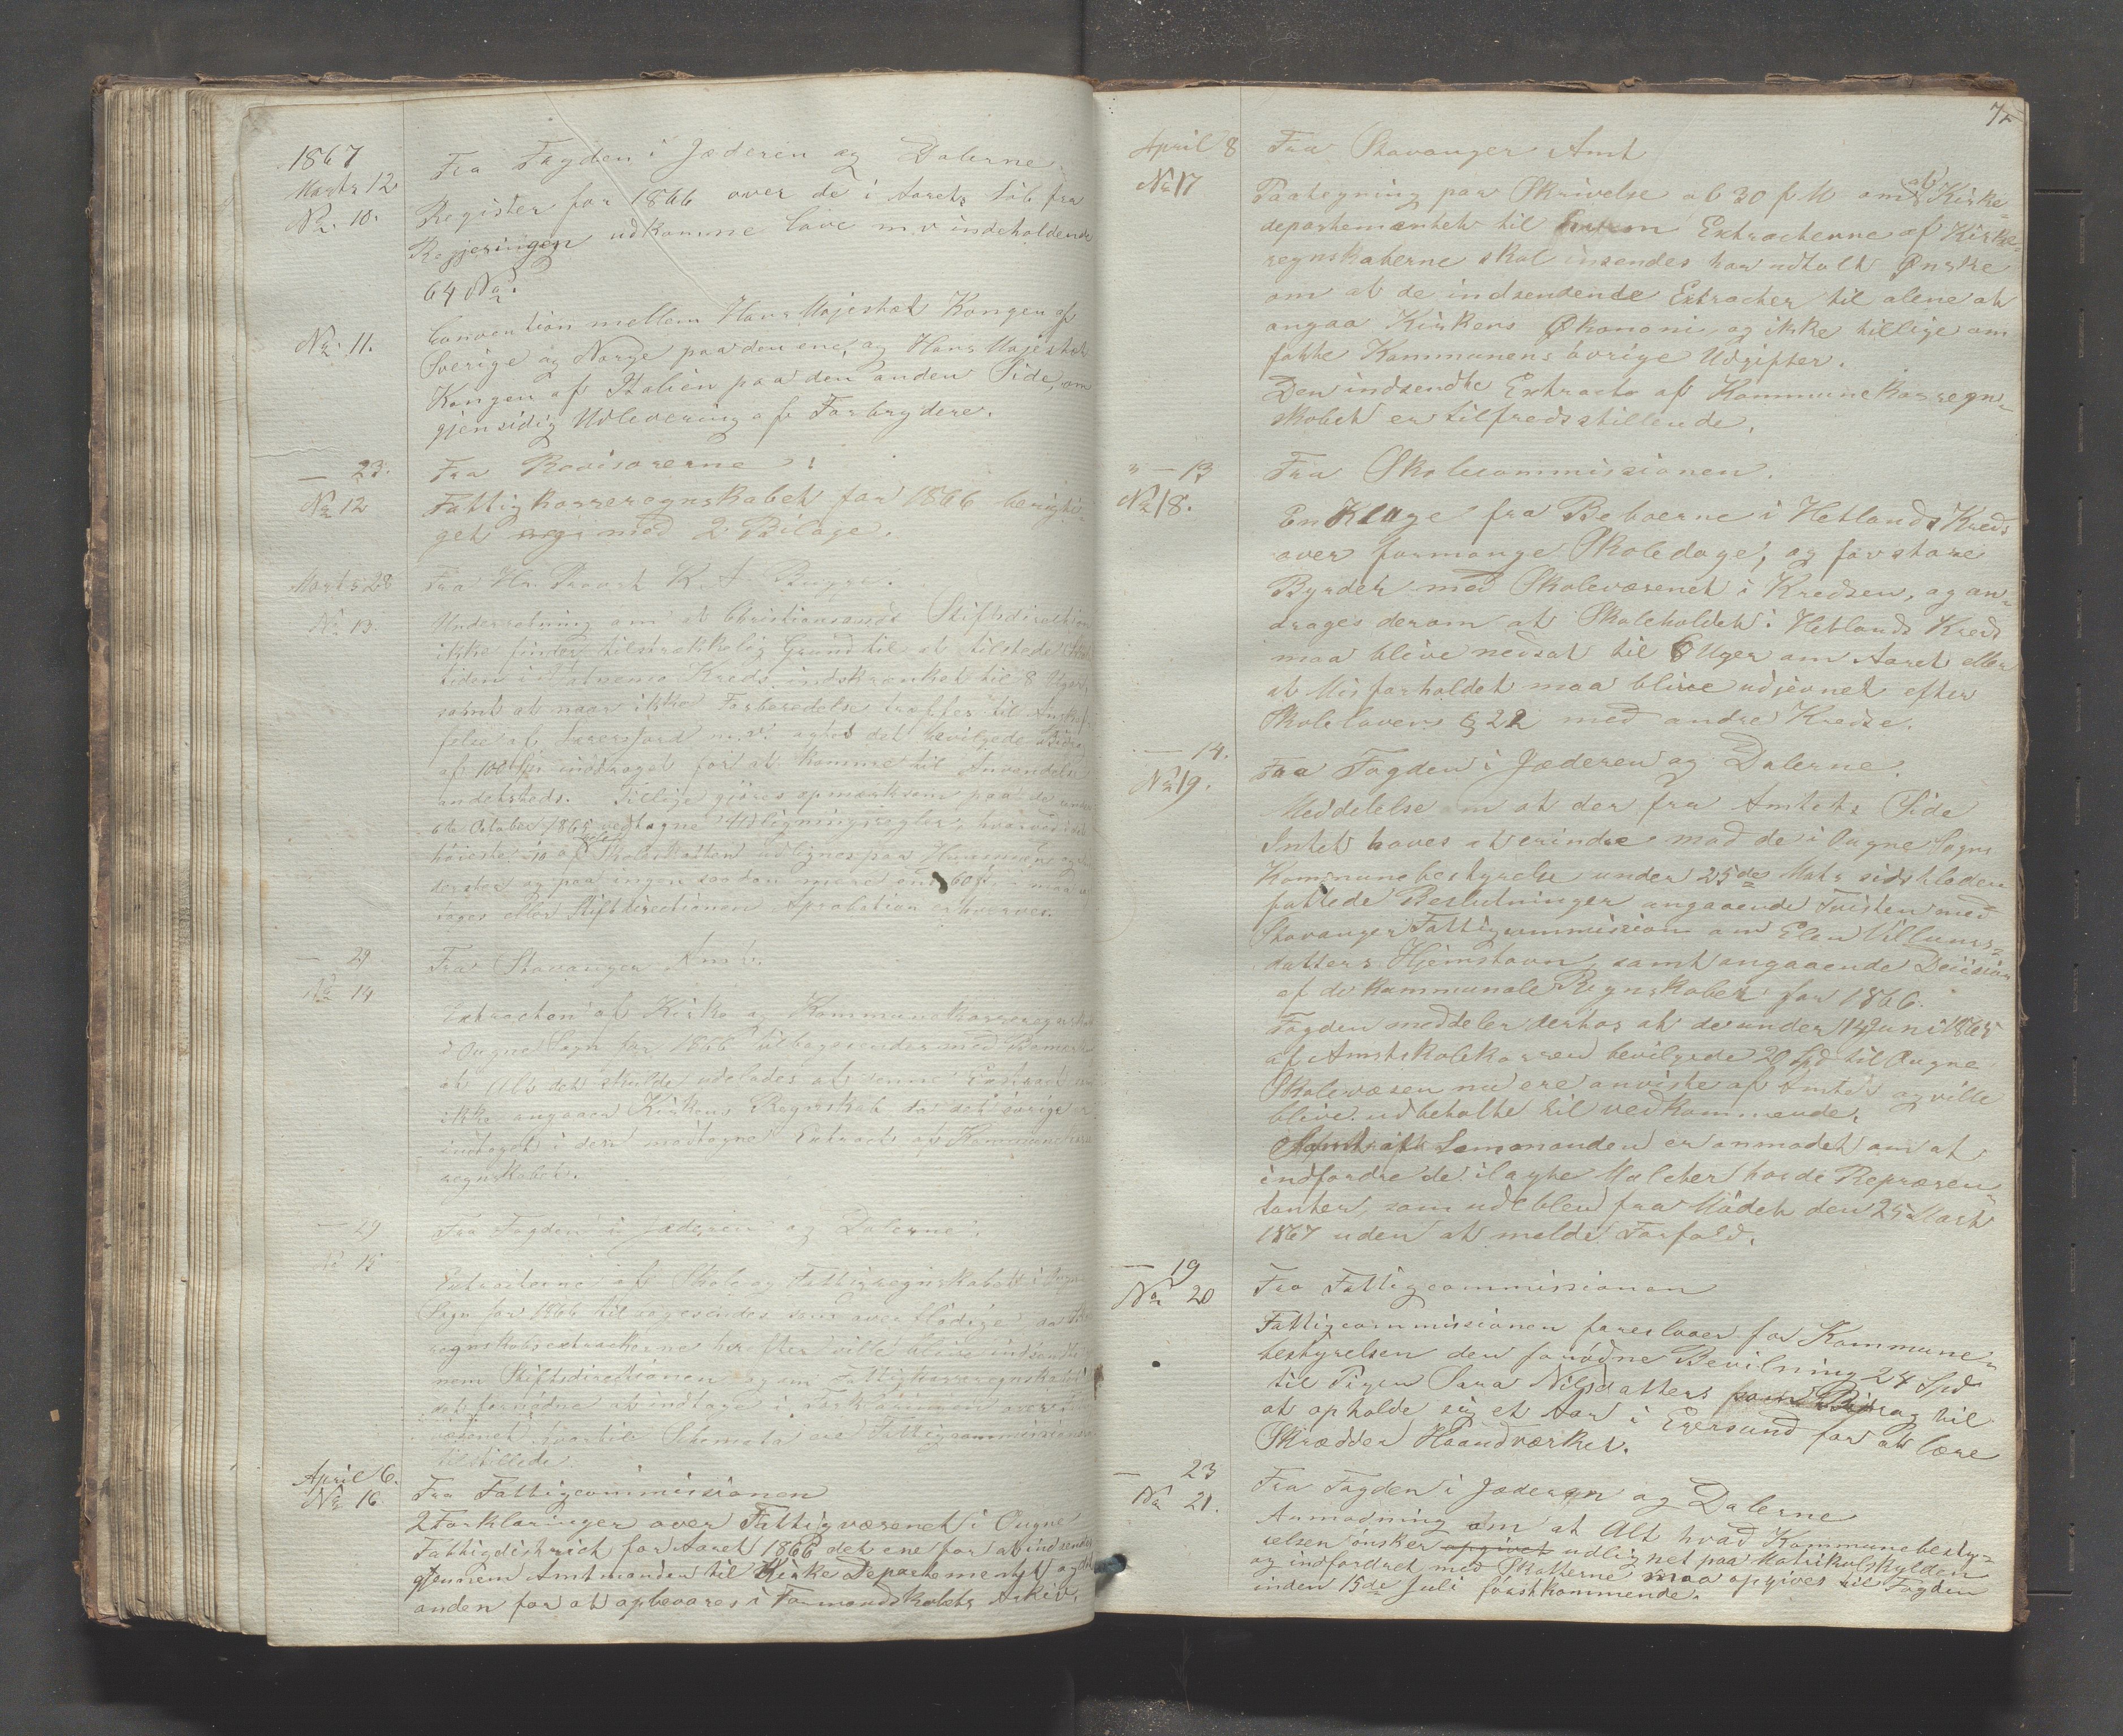 1867
Marts 12
No. 10.
Fra Fogden i Jæderen og Dalerne
Register for 1866 over de i Aarets Löb fra
Regjeringen udkomne Love m.v. indeholdende
64 No.
No. 11.
Convention mellem Hans Majestæt Kongen af
Sverige og Norge paa den ene, og Hans Majestæt
Kongen af Italien paa den anden Side, om
gjensidig Udlevering af Forbrydere.
— 23.
No 12
Fra Revisorerne
Fattigkasseregnskabet for 1866 berigti-
get med 2 Bilage.
Marts 28
No 13.
Fra Hr. Provst
Underretning om at Christiansands Stiftsdirection
ikke finder tilstrækkelig Grund til at tilstede
tiden i Kreds indskrænket til 8 Uger,
samt at naar ikke Forberedelse træffes til
felse af m.v. det bevilgede
af 100 inddraget for at komme til Anvendelse
andetsteds. Tillige gjöres opmærksom paa de under
6te October 1865 vedtagne Udligningsregler, hvorved
höieste 1/10 af Skoleskatten udlignes paa Huusmænd og
og paa ingen saadan mere end 60 ß, maa
tages eller Stiftsdirectionens Aprobation erhverves.
— 29
No 14
Fra Stavanger Amt.
Extracten af Kirke og Kommunekasseregnskabet
i Ougne Sogn for 1866 tilbagesendes med Bemærkn.
at Alt det skulde udelades af denne Extract som
ikke angaaer Kirkens Regnskab, da det övrige er
indtaget i den modtagne Extract af Kommunekasse
regnskabet.
— 29
No 15
Fra Fogden i Jæderen og Dalerne.
Extracterne af Skole og Fattigregnskabet i Ougne
Sogn for 1866 tilbagesendes som overflödige, da
regnskabsextracterne herefter ville blive indsendte
nem Stiftsdirectionen og om Fattigkasseregnskabet
det fornödne at indtage i Forklaringen over
væsenet, hvortil Schemata ere Fattigcommissionen
tilstillede.
April 6.
No 16
Fra Fattigcommissionen
2 Forklaringer over Fattigvæsenet i Ougne
Fattigdistrict for Aaret 1866 det ene for at indsendes
gjennem Amtmanden til Kirke Departementet og det
anden for at opbevares i Formandskabets Arkiv.
72
April 8
No 17
Fra Stavanger Amt
Paategning paa Skrivelse af 30 f. M. om at Kirke-
departementet til hvem Extracterne af Kirke-
regnskaberne skal insendes har udtalt Ønske
om at de indsendende Extracter til alene at
angaa Kirkens Økonomi, og ikke tillige om
fatte Kommunens övrige Udgifter.
Den indsendte Extract af Kommunekasseregn-
skabet er tilfredsstillende.
" — 13
No 18.
Fra Skolecommissionen.
En Klage fra Beboerne i Hetlands Kreds
over formange Skoledage, og for store
Byrder med Skolevæsenet i Kredsen, og an-
drages derom at Skoleholdet i Hetlands Kreds
maa blive nedsat til 6 Uger om Aaret eller
at Misforholdet maa blive udjevnet efter
Skoleloven § 22 med andre Kredse.
— 14.
No 19.
Fra Fogden i Jæderen og Dalerne.
Meddelelse om at der fra Amtets Side
Intet haves at erindre mod de i Ougne Sogns
Kommunebestyrelse under 25de Mats sidstleden
fattede Beslutninger angaaende Tvisten med
Stavanger Fattigcommission om Elen Villums-
datters Hjemstavn, samt angaaende Decision
af de kommunale Regnskaber for 1866.
Fogden meddeler derhos at de under 14 Juni 1865
af Amtskolekassen bevilgede 20 Spd til Ougne
Skolevæsen nu ere anviste af Amtet og ville
blive udbetalte til vedkommende.
Lensmanden er anmodet om at
indfordre de ilagte Mulcter hos de Repræsen
tanter, som udebleve fra Mödet den 25 Mart
1867 uden at melde Forfald.
— 19
No 20
Fra Fattigcommissionen
Fattigcommissionen foreslaaer for Kommune-
bestyrelsen den fornödne Bevilning 24 Spd
til Pigen Sara Nilsdatters Bidrag til
at opholde sig et Aar i Egersund for at lære
Skrædder Haandværket.
— 23
No 21.
Fra Fogden i Jæderen og Dalerne
Anmodning om at Alt hvad Kommunebesty-
relsen ønsker opgivet udlignet paa Matrikulskylden
og indfordret med Skatterne maa opgives til Fogden
inden 15de Juli förstkommende.